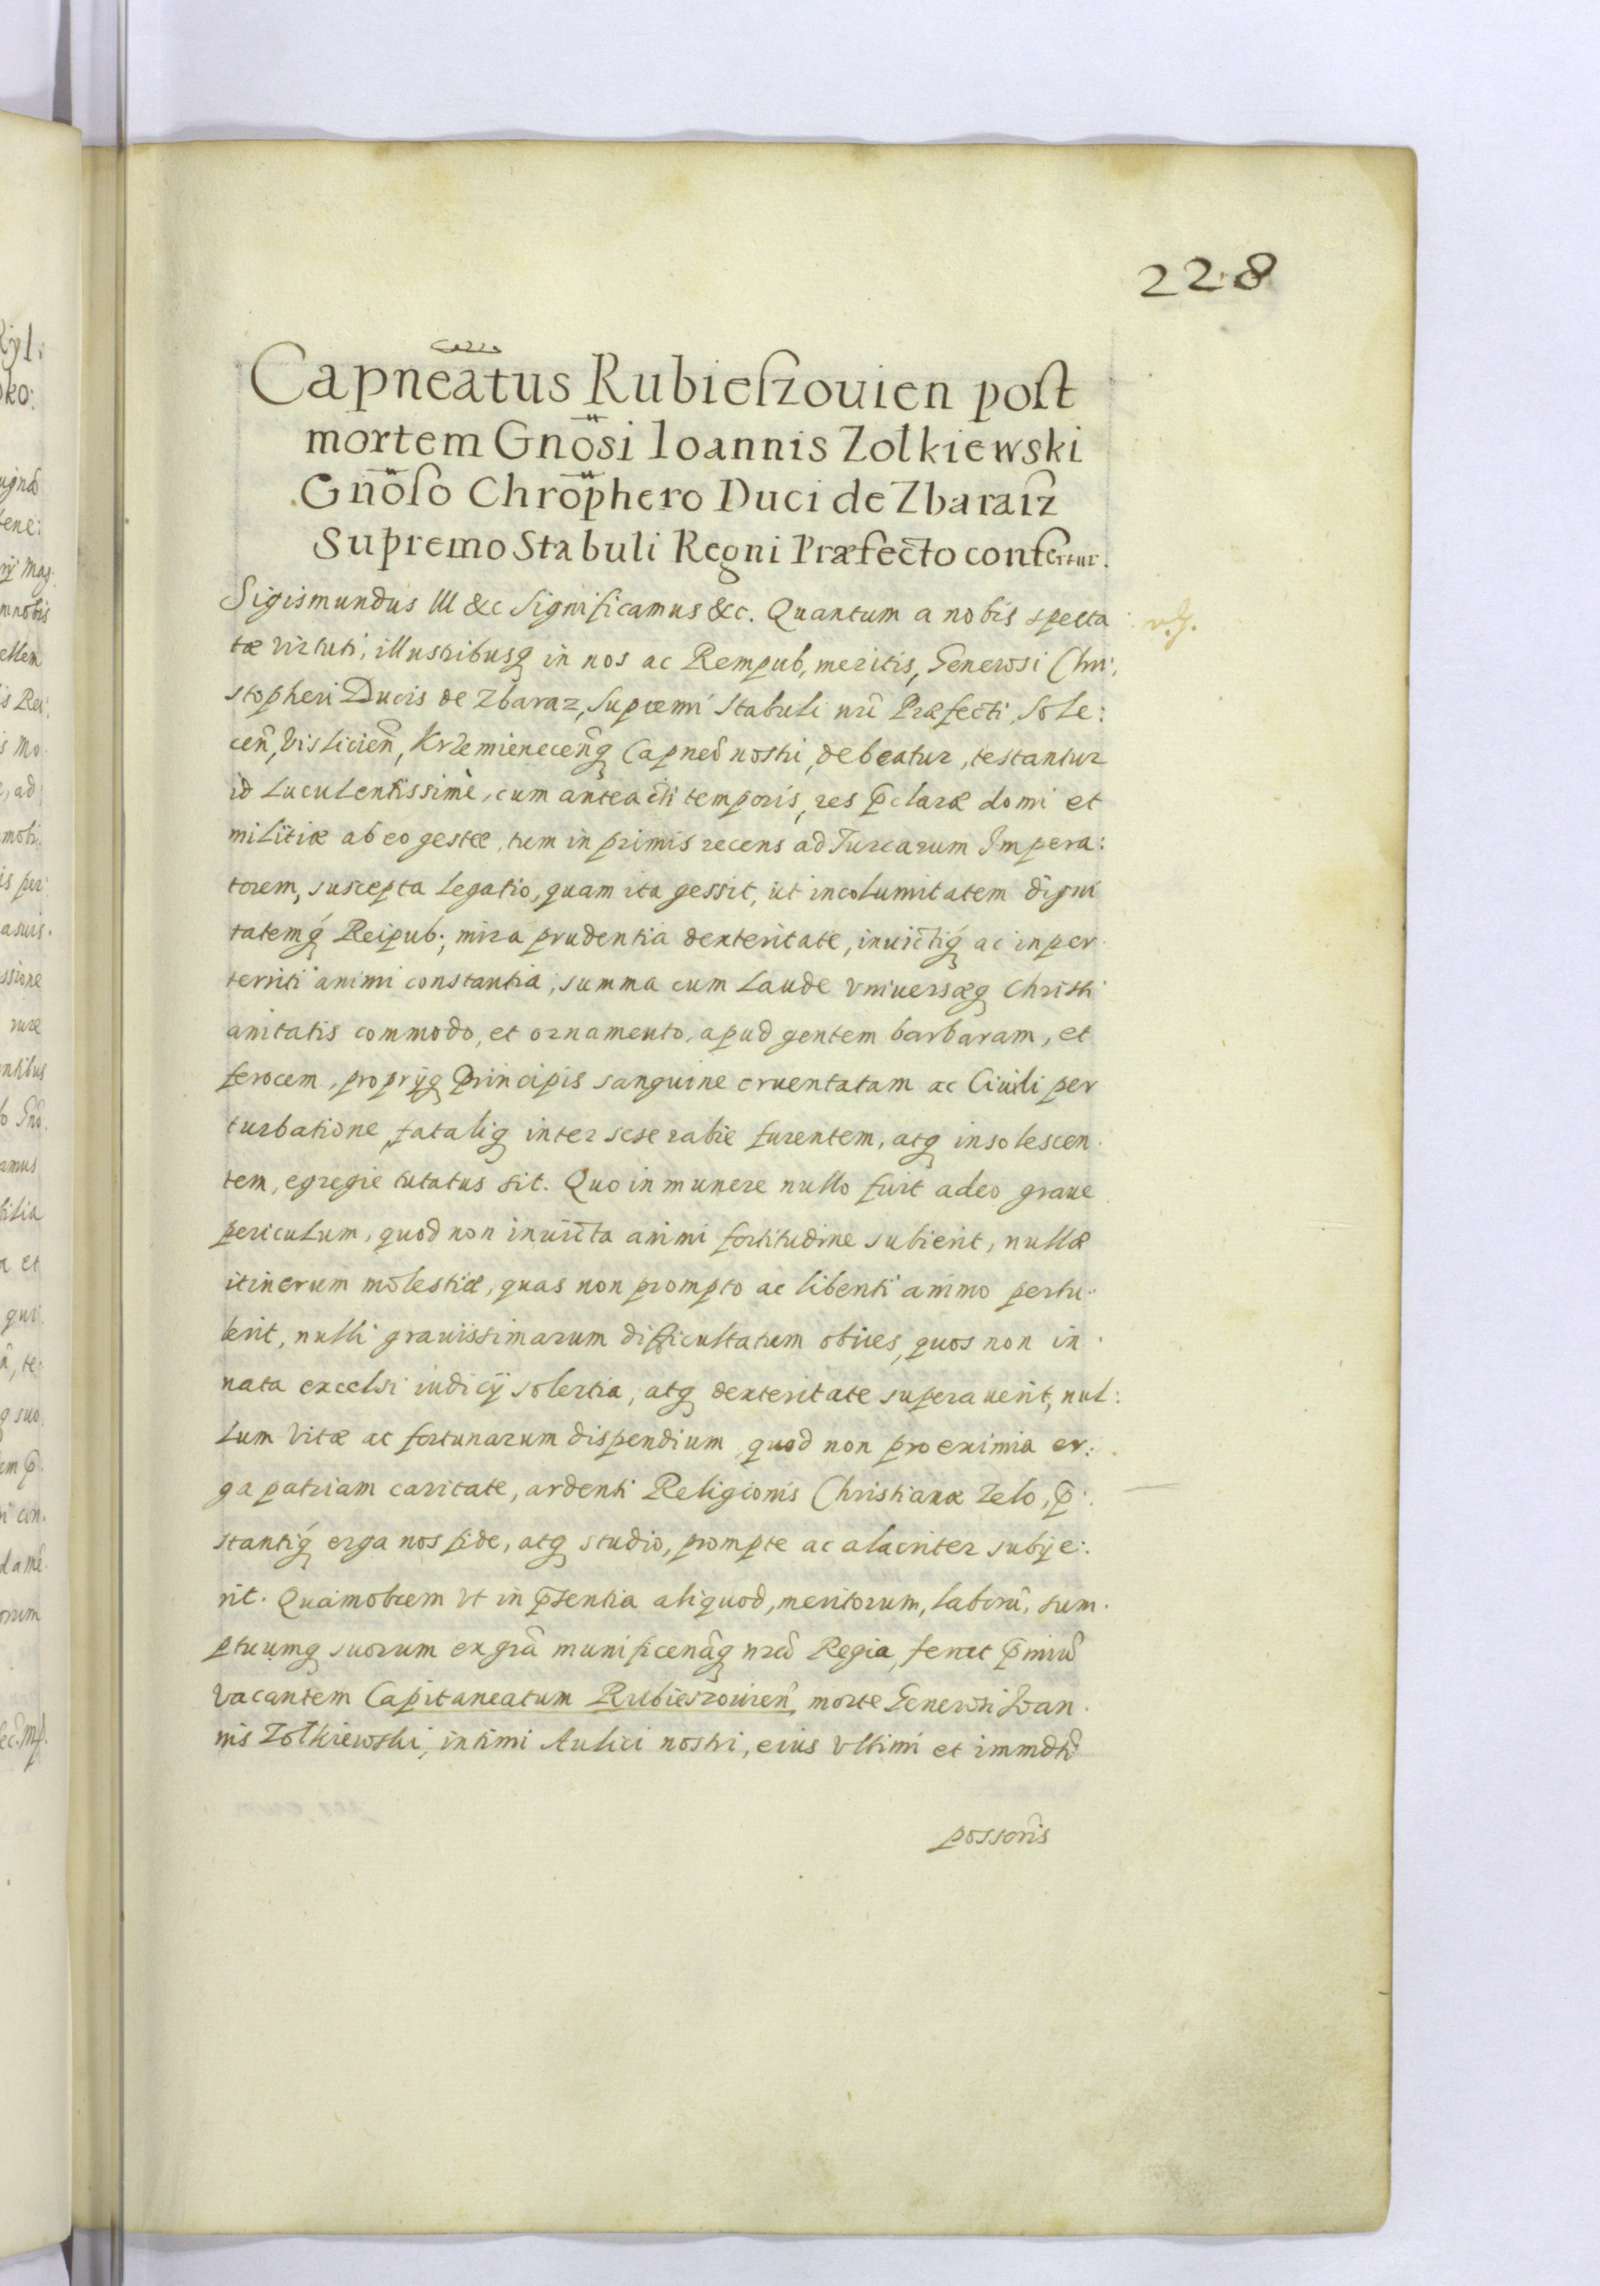 228
Capneatus Rubieszouien post
mortem Gnosi Ioannis Zolkiewski
Gnoso Chrophero Duci de Zbaraiz
Supremo Stabuli Regni Præfecto confertur.
Sigismundus III &c Significamus &c. Quantum a nobis specta
tæ virtuti, illustribusq in nos ac Rempub, meritis, Generosi Chri:
stopheri Ducis de Zbaraz, Supremi Stabuli nri Præfecti, Sole:
cen, Vislicien, Krzemienecenq Capnei nostri, debeatur, testantur
id Luculentissimè, cum anteacti temporis, res pclaræ domi et
militiæ ab eo gestæ, tum in primis recens ad Turcarum Impera:
torem, suscepta Legatio, quam ita gessit, ut incolumitatem digni
tatemq Reipub; mira prudentia dexteritate, inuictiq ac inper
territi animi constantia, summa cum Laude vniuersæq Christi
anitatis commodo, et ornamento, apud gentem barbaram, et
ferocem, proprijq Principis sanguine cruentatam ac Ciuili per
turbatione, fataliq inter sese rabie furentem, atq insolescen
tem, egregie tutatus sit. Quo in munere nullo fuit adeo graue
periculum, quod non inuicta animi fortitudine subierit, nullæ
itinerum molestiæ, quas non prompto ac libenti animo pertu
lerit, nulli grauissimarum difficultatum obices, quos non in
nata excelsi iudicij solertia, atq dexteritate superauerit, nul:
Lum vitæ ac fortunarum dispendium, quod non pro eximia er:
ga patriam caritate, ardenti Religionis Christianæ Zelo, p:
stantiq erga nos fide, atq studio, prompte ac alacriter subije:
rit. Quamobrem vt in psentia aliquod, meritorum, laborū, sum
ptuumq suorum ex gra munificenaq nra Regia, ferret pmiū
vacantem Capitaneatum Rubieszouien, morte Generosi Ioan
nis Zolkiewski, intimi Aulici nostri, eius vltimi et immdti
possoris